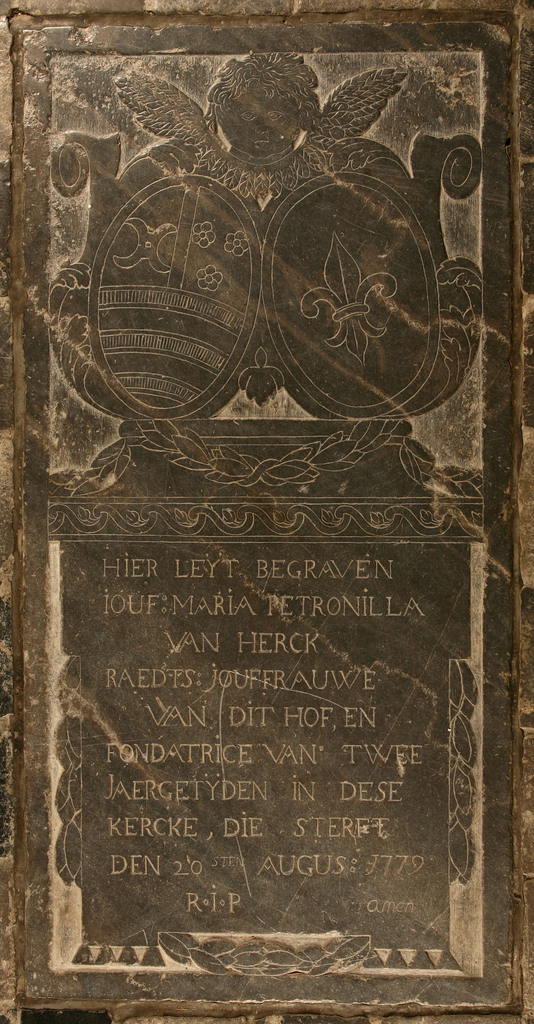 HIER LEYT BEGRAVEN
IOUF: MARIA PETRONILLA
VAN HERCK
RAEDTS: JOUFFRAUWE
VAN DIT HOF, EN
FONDATRICE VAN TWEE
JAERGETYDEN IN DESE
KERCKE, DIE STERFT
DEN 20 STEN AUGUS: 1779
R·I·P amen